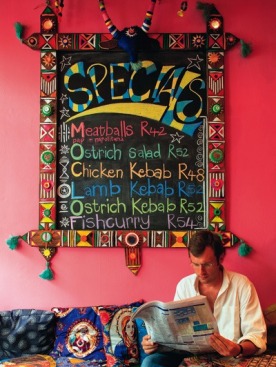 SPECIALS
Meatballs R42
Ostrich Salad R52
Chicken Kebab R48
Lamb Kebab R52
Ostrich Kebab R52
Fishcurry R54